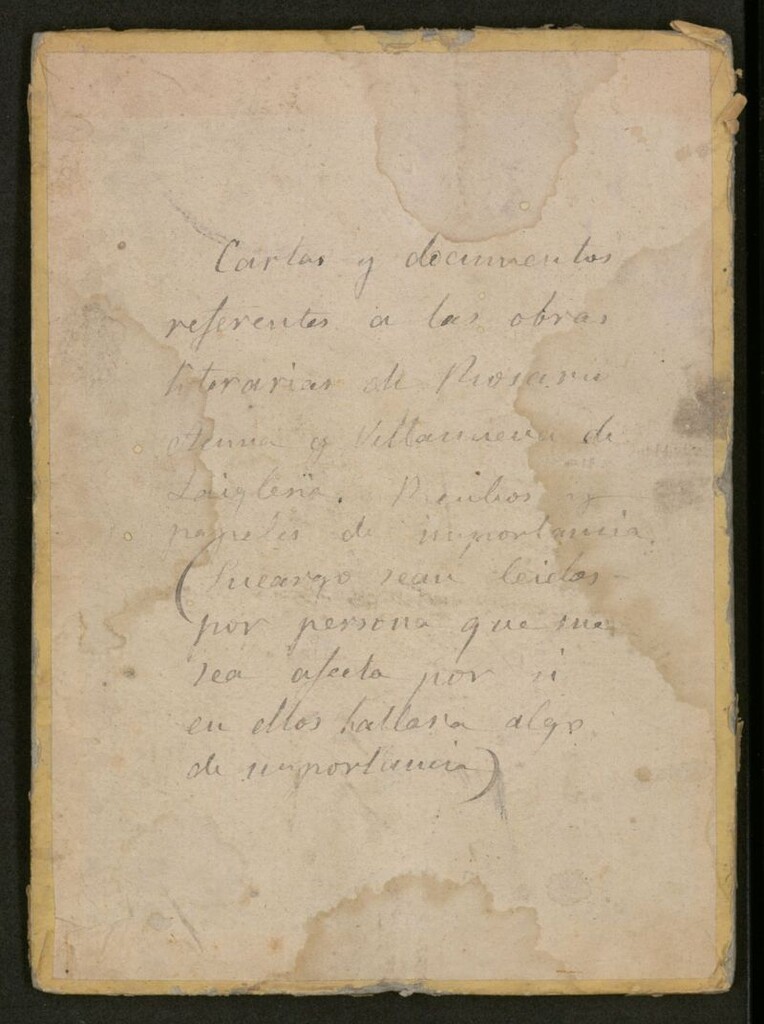 Cartas y documentos
referentes a las obras
literarias de Rosario
Acuna y Villanueva de
Laiglesia. Recibos y
papeles de importancia.
(Encargo sean leidos
por persona que me
sea afecta por si
en ellos hallara algo
de importancia)